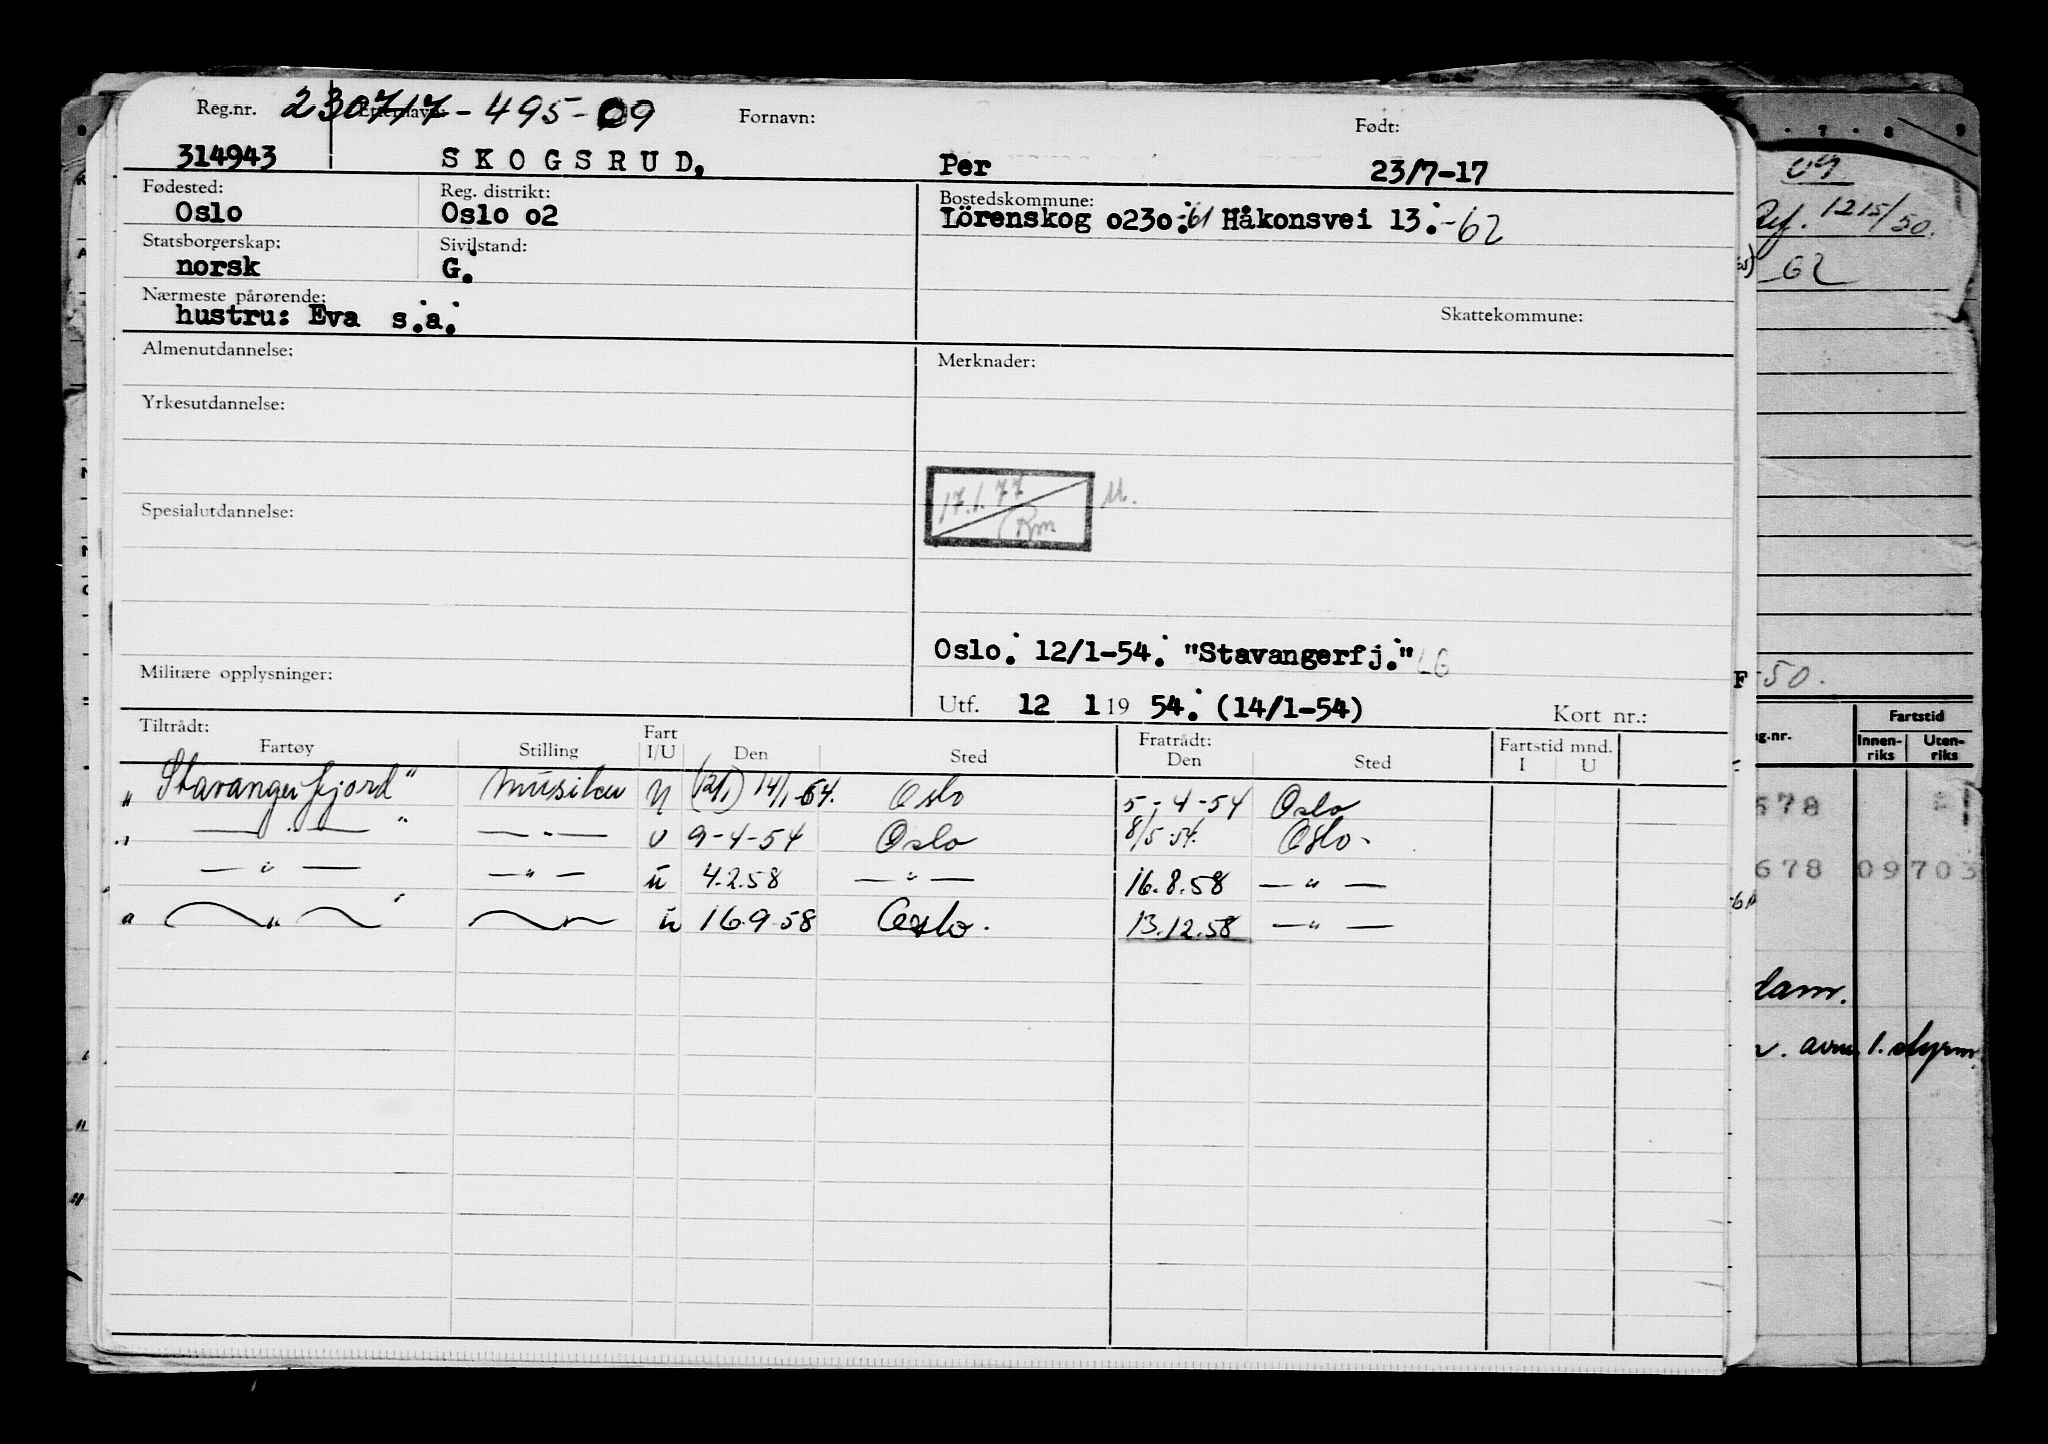 Reg.nr. 230717-495-09 Fornavn: Født:
314943 SKOGSRUD, Per 23/7-17
Fødested: Reg. distrikt: Bostedskommune:
Oslo Oslo o2 Lörenskog o23o.-61 Håkonsvei 13.-62
Statsborgerskap: Sivilstand:
norsk G.
Nærmeste pårørende: Skattekommune:
hustru: Eva s.a.
Almenutdannelse: Merknader:
Yrkesutdannelse:
17.1.77
Spesialutdannelse:
Oslo. 12/1-54. "Stavangerfj."
Militære opplysninger:
Utf. 12 1 19 54. (14/1-54) Kort nr.:
Tiltrådt: Fart Fratrådt: Fartstid mnd.
Fartøy Stilling I/U Den Sted Den Sted I U
"Stavangerfjord" Musiker U (12/1) 14/1-54. Oslo 5-4-54 Oslo
" — " — " — " — U 9-4-54 Oslo 8/5-54. Oslo.
— " — — " — u 4.2.58 — " — 16.8.58 — " —
" — " — " — " — u 16.9.58 Oslo. 13.12.58 — " —
7 8 9
09
Ref. 1215/50.
62
F-50.
Fartstid
Innen-riks Uten-riks
578
678 09703
dam.
1. styrm.